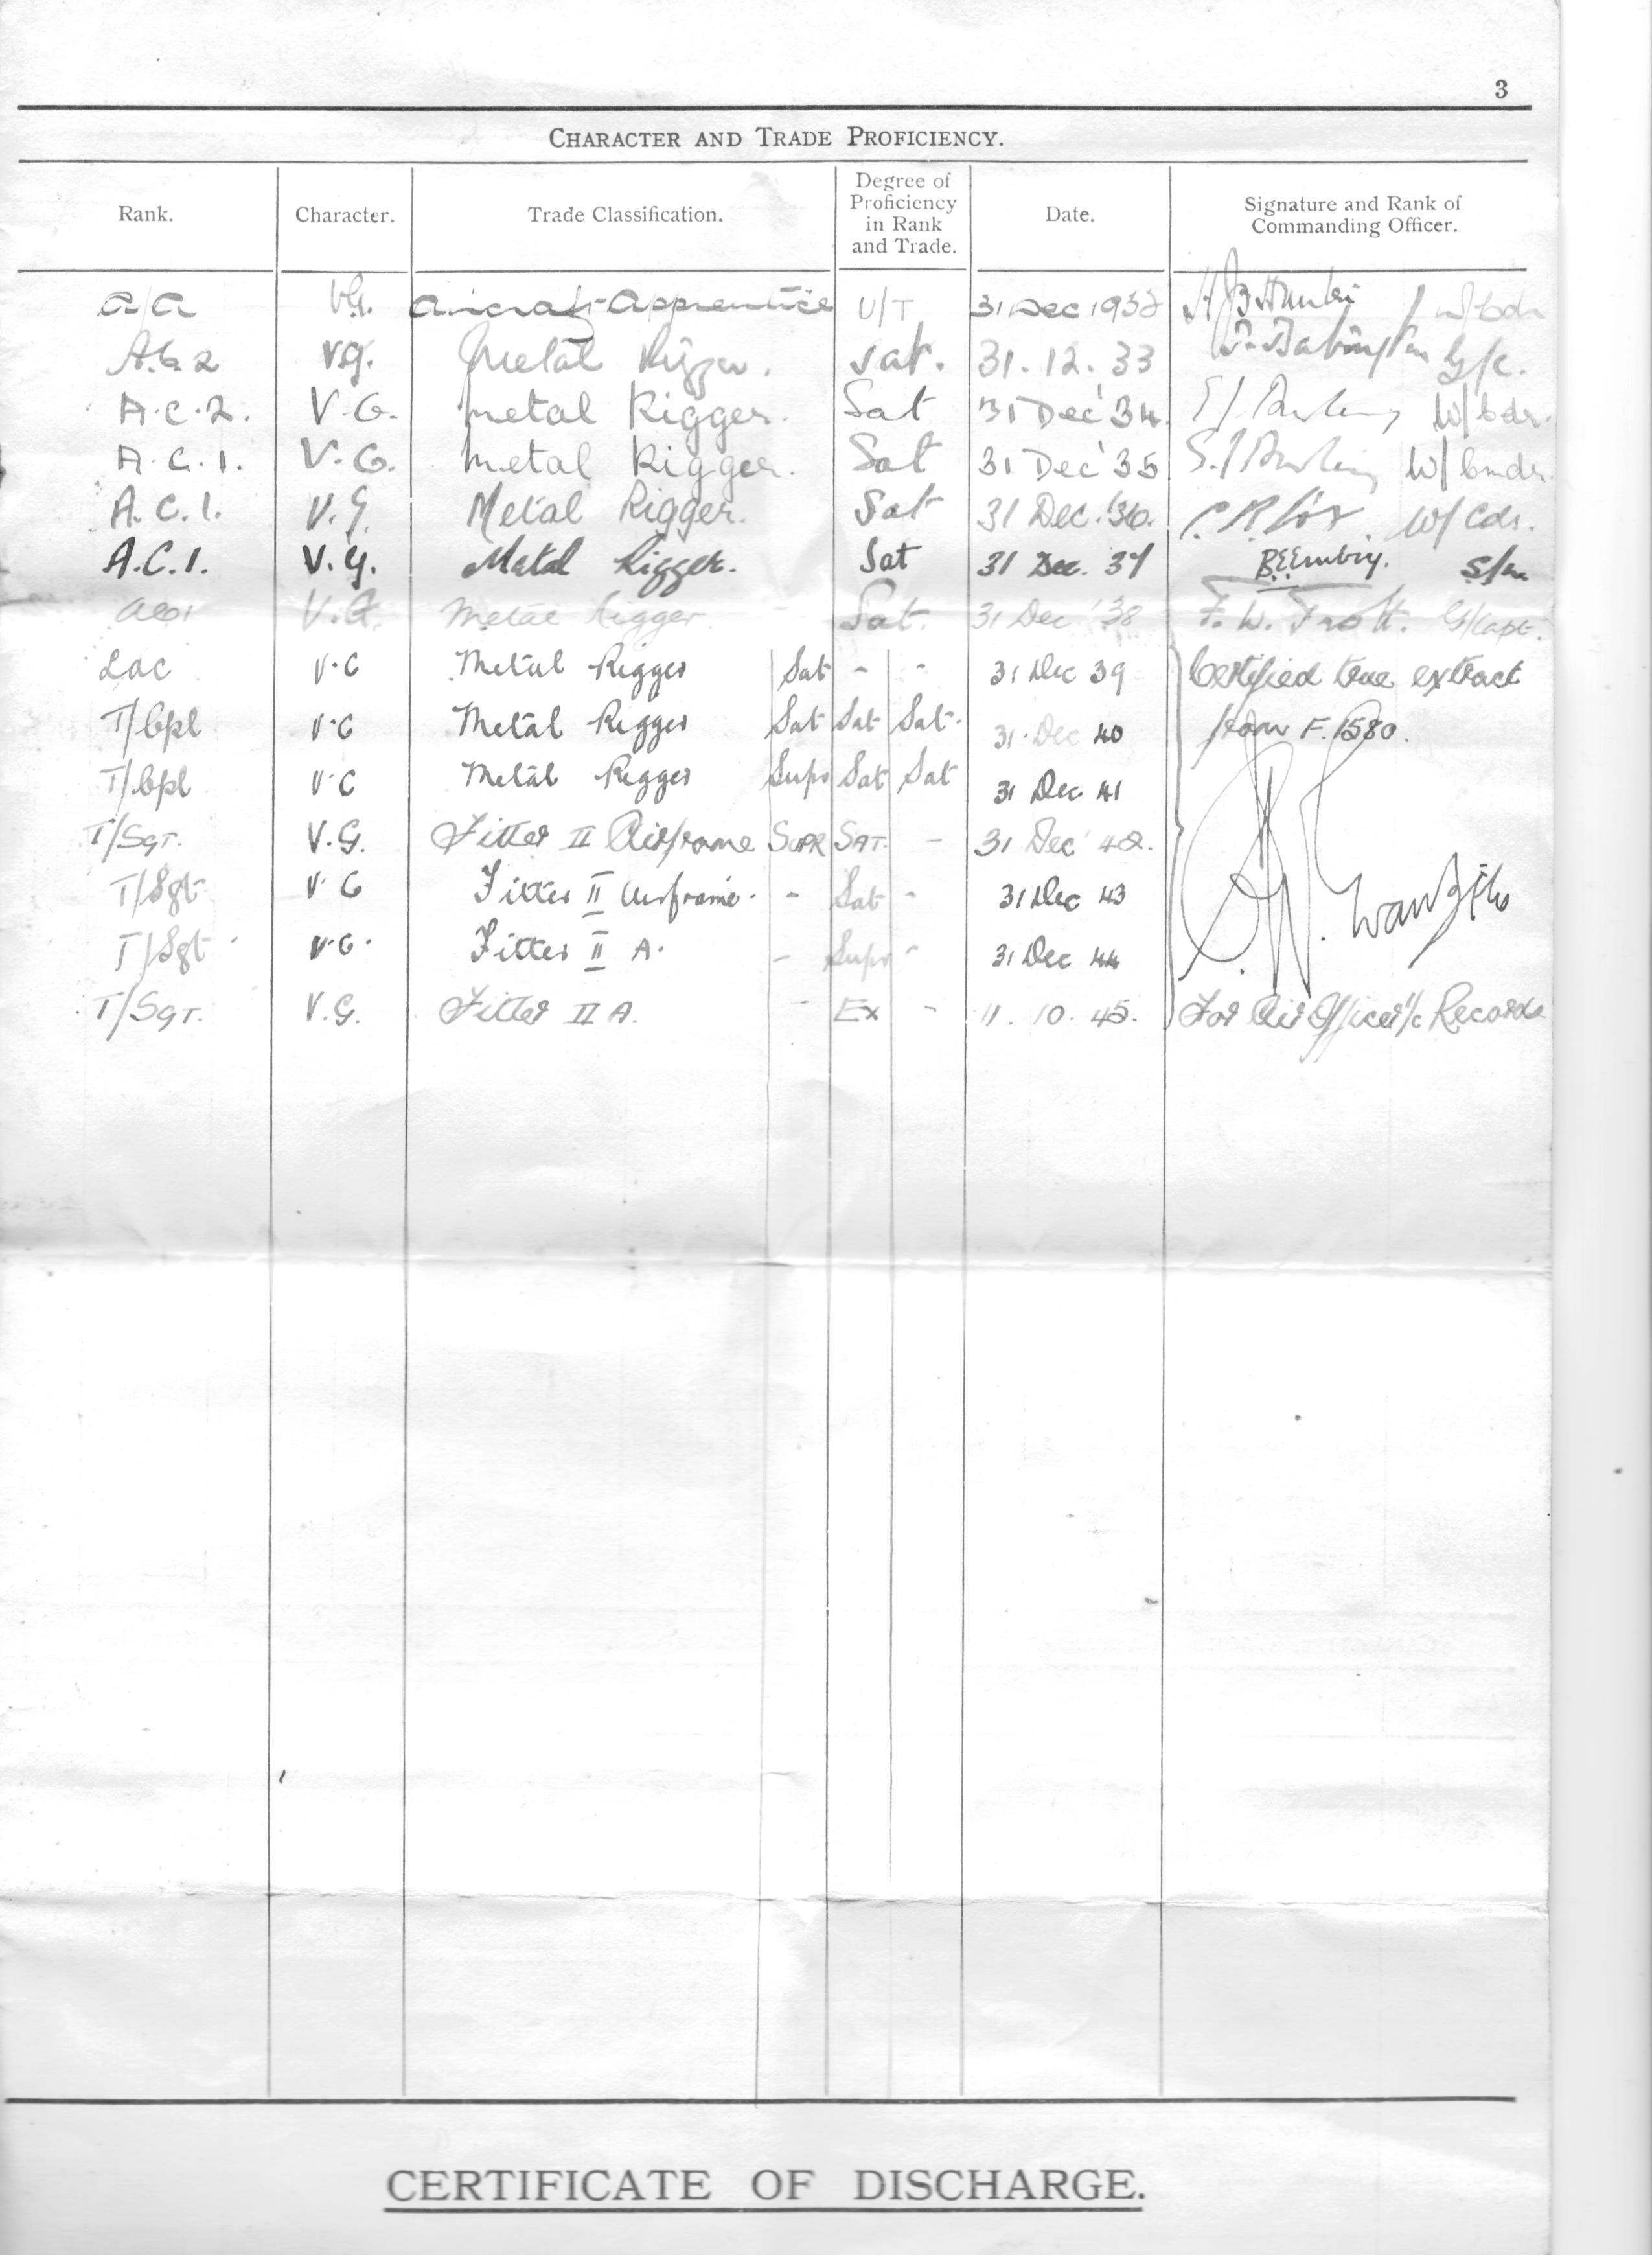 3
CHARACTER AND TRADE PROFICIENCY.
Rank. Character. Trade Classification. Degree of Proficiency in Rank and Trade. Date. Signature and Rank of Commanding Officer.
A/A V.G. Aircraft Apprentice U/T 31 Dec 1932
A.C.2 V.G. Metal Rigger. Sat. 31.12.33 G/C.
A.C.2. V.G. Metal Rigger. Sat 31 Dec '34. W/Cdr.
A.C.1. V.G. Metal Rigger. Sat 31 Dec '35 W/Cmdr.
A.C.1. V.G. Metal Rigger. Sat 31 Dec. '36. W/Cdr.
A.C.1. V.G. Metal Rigger. Sat 31 Dec. 37 B.E.Embry. S/Ldr
AC1 V.G. Metal Rigger Sat. 31 Dec '38 F. W. Trott. G/Capt.
Lac V.G Metal Rigger Sat - - 31 Dec 39 Certified true extract
T/Cpl V.G Metal Rigger Sat Sat Sat. 31 Dec 40 from F.1580.
T/Cpl V.G Metal Rigger Supr Sat Sat 31 Dec 41
T/SGT. V.G. Fitter II Airframe SUPR SAT. - 31 Dec 42.
T/Sgt V.G Fitter II Airframe. - Sat - 31 Dec 43
T/Sgt V.G. Fitter II A. - Supr - 31 Dec 44
T/SGT. V.G. Fitter II A. - Ex - 11.10.45. For Air Officer i/c Records
CERTIFICATE OF DISCHARGE.